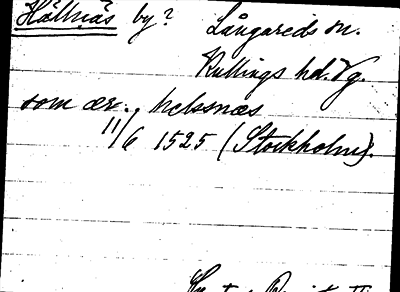 Hällnäs by? Långareds sn.
Kullings hd. Vg.
som ær. helssnæs
11/6 1525 (Stockholm).